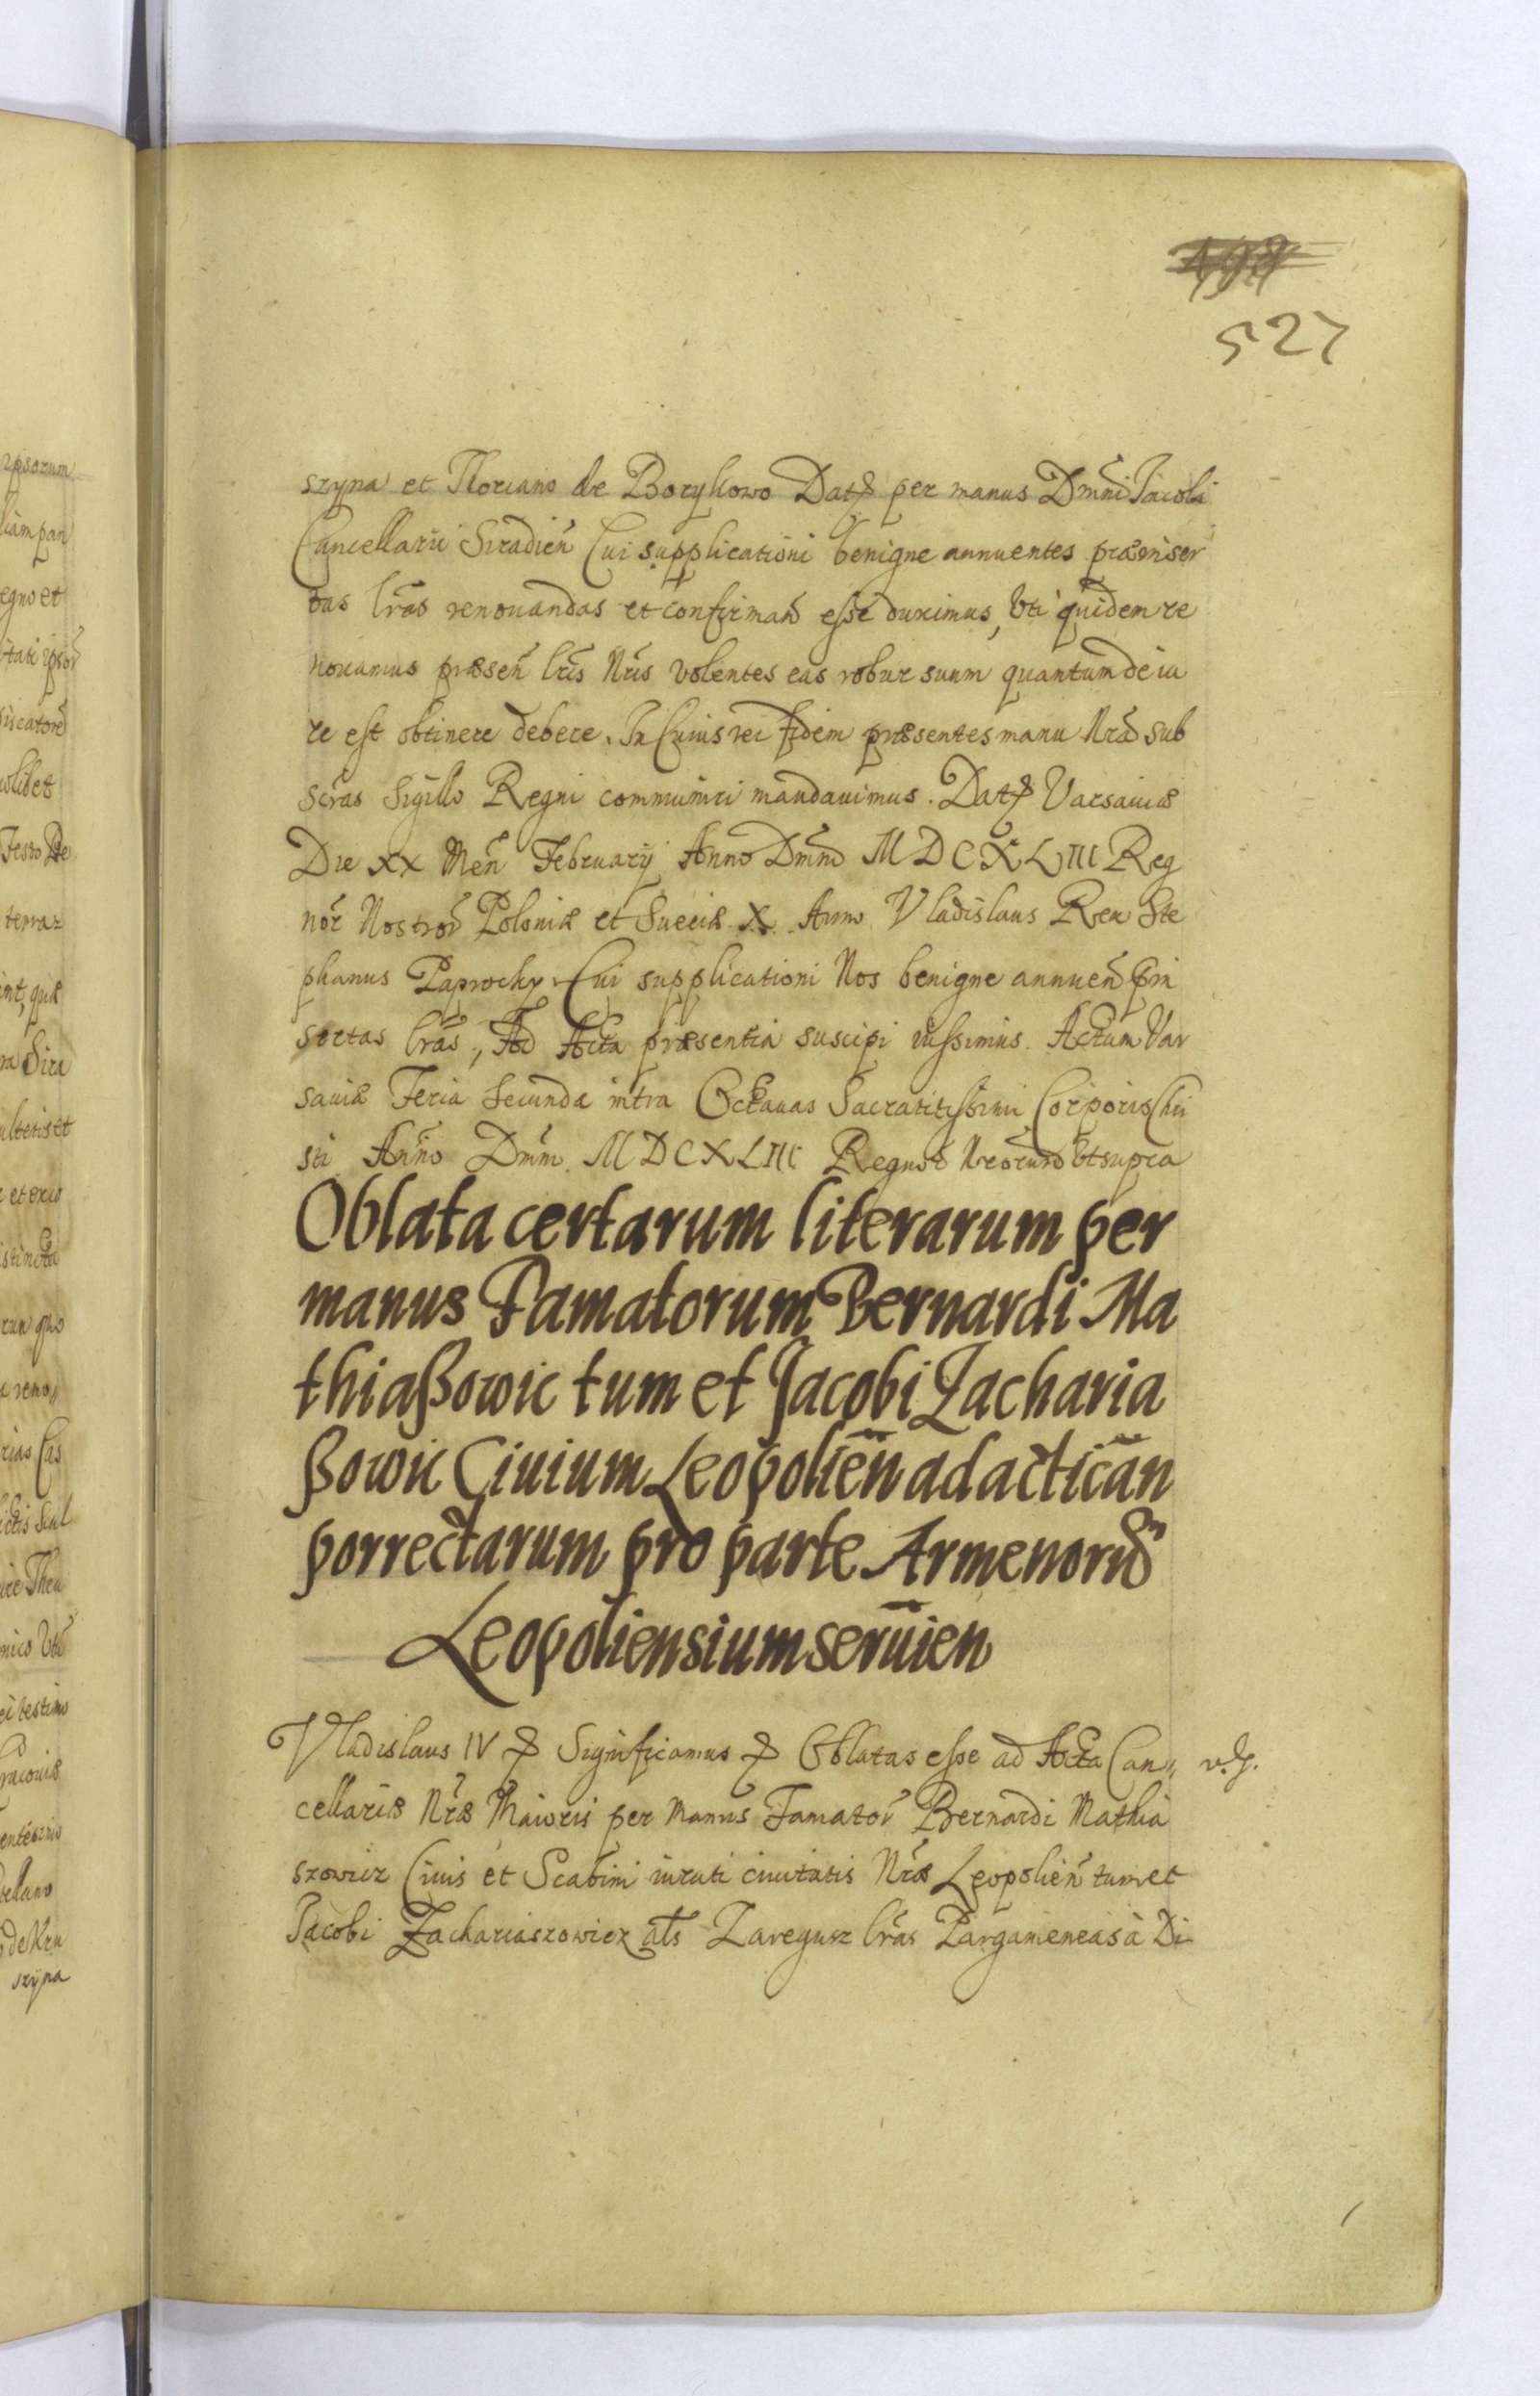 527
szyna et Floriano de Borykowo Dat per manus Dm̃ni Jacobi
Cancellarii Siradien̄ Cui supplicationi benigne annuentes præinser
tas lr̃as renouandas et confirmand esse duximus, Vti quidem re
nouamus præsen̄ lr̃is Nr̃is volentes eas robur suum quantum de iu
re est obtinere debere. In Cuius rei fidem præsentes manu Nr̃a sub
scr̃as Sigillo Regni communiri mandauimus. Dat Varsauiæ
Die XX Men̄ February Anno Dm̃ni MDCXLIII Reg
nor̃ Nostror̃ Poloniæ et Sueciæ X. Anno Vladislaus Rex Ste
phanus Paprocky Cui supplicationi Nos benigne annuen̄ p̄in
sertas lr̃as, Ad Acta præsentia suscipi iussimus. Actum Var
sauiæ Feria Secunda intra Octauas Sacratitissimi Corporis Chri
sti Anno Dm̃ni MDCXLIII Regnor̃ Nr̃orum Vt supra
Oblata certarum literarum per
manus Famatorum Bernardi Ma
thiaßowic tum et Jacobi Zacharia
ßowic Ciuium Leopolien̄ ad actican̄
porrectarum pro parte Armenorũ
Leopoliensium seruien̄
Vladislaus IV & Significamus & Oblatas esse ad Acta Can,,
cellariæ Nr̃æ Maioris per Manus Famator̃ Bernardi Mathia
szowicz Ciuis et Scabini iurati ciuitatis Nr̃æ Leopolien̄ tum et
Jacobi Zachariaszowicz al̃s Zaregusz lr̃as Pargameneas à Di